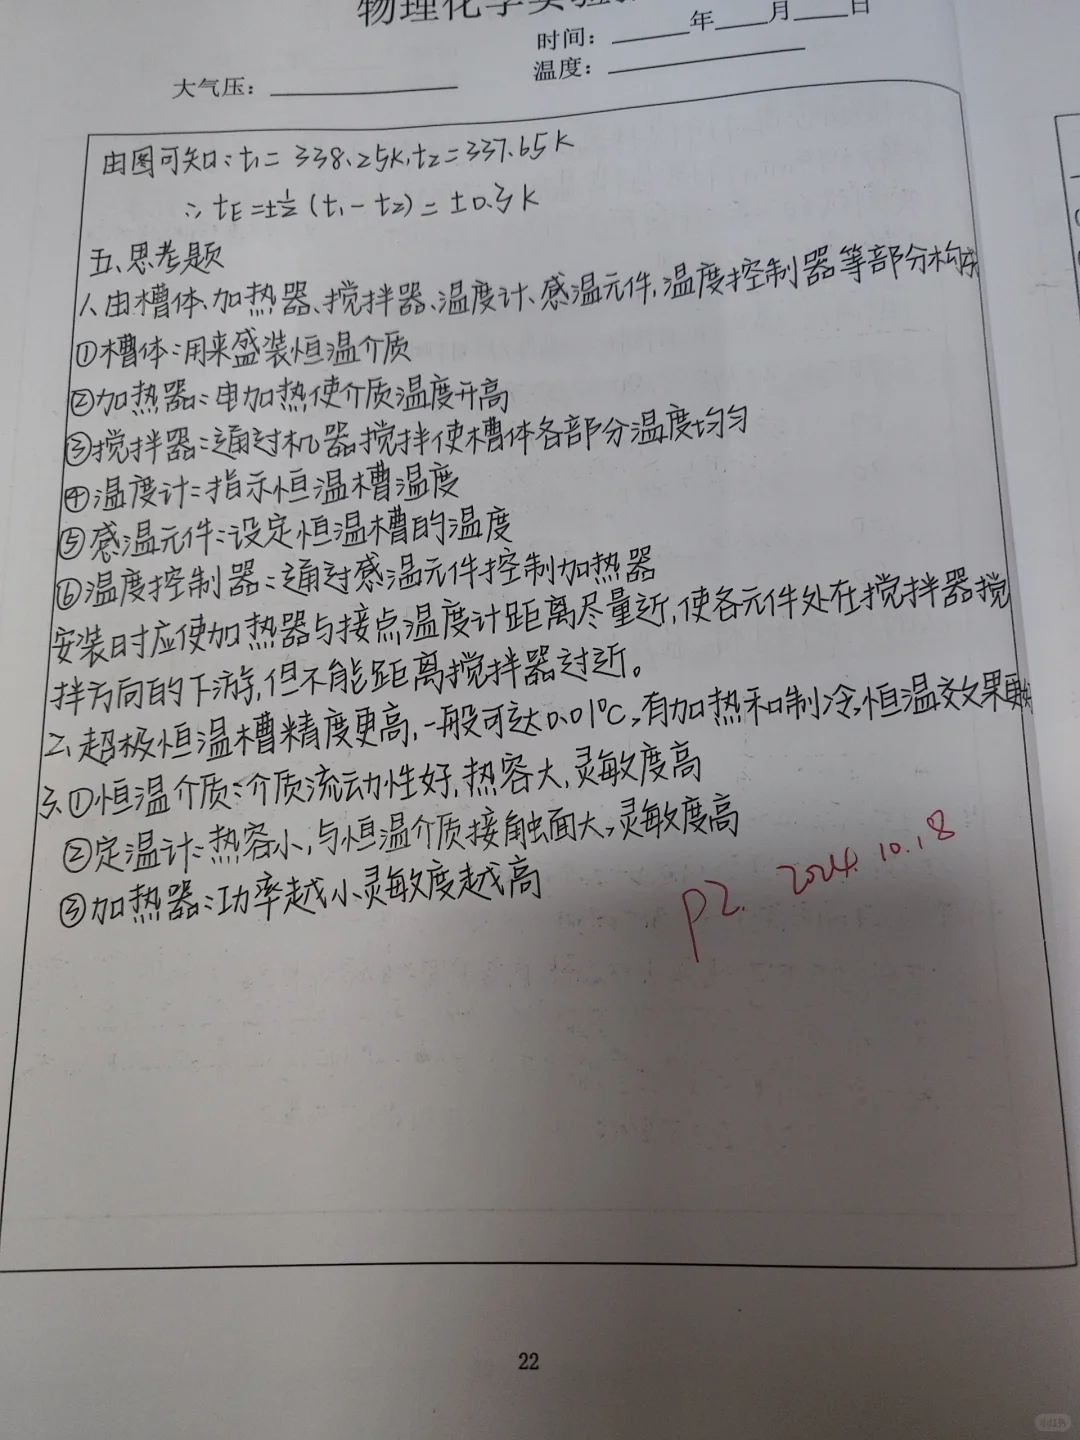 物理化学实验
时间：____年____月____日
大气压：____ 温度：____
由图可知：t₁= 338.25K, t₂=337.65K
∴ tE=±½(t₁-t₂)=±0.3K
五、思考题
1、由槽体、加热器、搅拌器、温度计、感温元件,温度控制器等部分构成
①槽体：用来盛装恒温介质
②加热器：电加热使介质温度升高
③搅拌器：通过机器搅拌使槽体各部分温度均匀
④温度计：指示恒温槽温度
⑤感温元件：设定恒温槽的温度
⑥温度控制器：通过感温元件控制加热器
安装时应使加热器与接点温度计距离尽量近,使各元件处在搅拌器搅
拌方向的下游,但不能距离搅拌器过近。
2、超极恒温槽精度更高,一般可达0.01℃,有加热和制冷,恒温效果更好
3、①恒温介质：介质流动性好,热容大,灵敏度高
②定温计：热容小,与恒温介质接触面大,灵敏度高
③加热器：功率越小灵敏度越高
P2. 2024.10.18
22